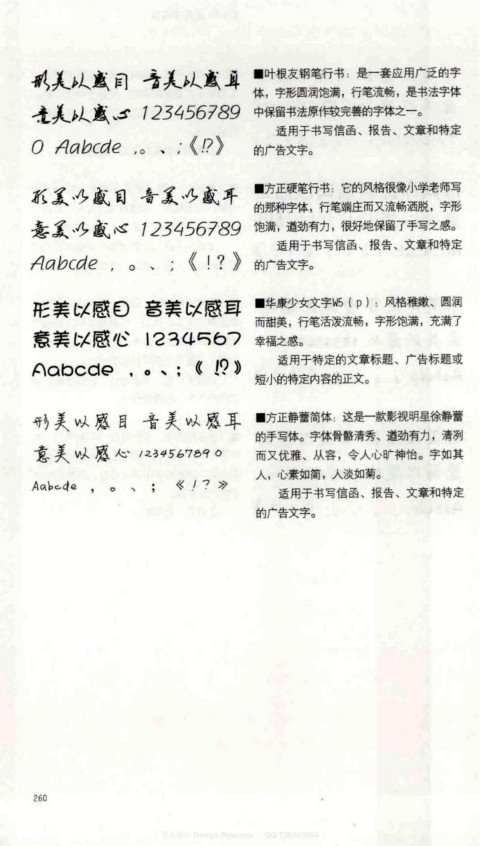 形美以感目 音美以感耳
意美以感心 123456789
0 Aabcde ,。、;《!?》
■叶根友钢笔行书：是一套应用广泛的字
体，字形圆润饱满，行笔流畅，是书法字体
中保留书法原作较完善的字体之一。
适用于书写信函、报告、文章和特定
的广告文字。
形美以感目 音美以感耳
意美以感心 123456789
Aabcde ,。、;《!?》
■方正硬笔行书：它的风格很像小学老师写
的那种字体，行笔端庄而又流畅洒脱，字形
饱满，遒劲有力，很好地保留了手写之感。
适用于书写信函、报告、文章和特定
的广告文字。
形美以感目 音美以感耳
意美以感心 1234567
Aabcde ,。、;《!?》
■华康少女文字W5（p）：风格稚嫩、圆润
而甜美，行笔活泼流畅，字形饱满，充满了
幸福之感。
适用于特定的文章标题、广告标题或
短小的特定内容的正文。
形美以感目 音美以感耳
意美以感心 1234567890
Aabcde ,。、;《!?》
■方正静蕾简体：这是一款影视明星徐静蕾
的手写体。字体骨骼清秀、遒劲有力，清冽
而又优雅、从容，令人心旷神怡。字如其
人，心素如简，人淡如菊。
适用于书写信函、报告、文章和特定
的广告文字。
260